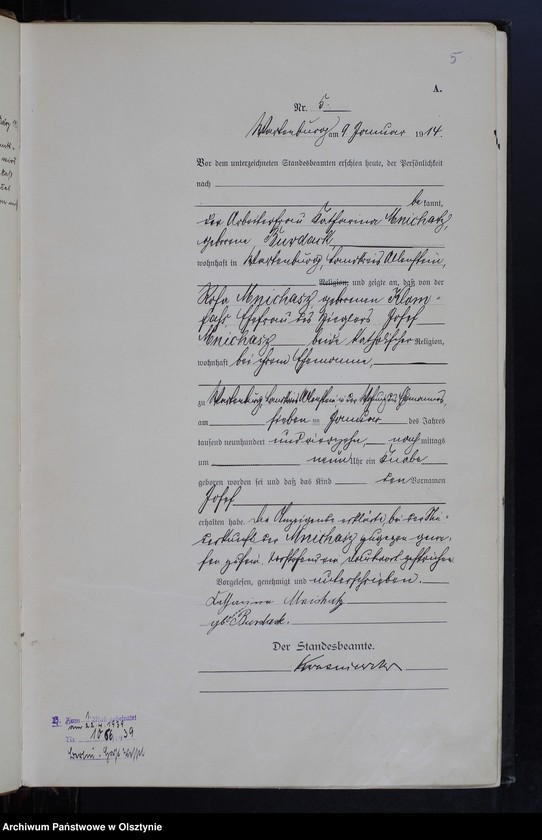 5
A.
Nr. 5.
Wartenburg am 9 Januar 1914.
Vor dem unterzeichneten Standesbeamten erschien heute, der Persönlichkeit
nach
be kannt,
der Arbeiterfrau Katharina Mnichatz,
geborene Burdack
wohnhaft in Wartenburg, Landkreis Allenstein,
Religion, und zeigte an, daß von der
Rosa Mnichasz geborenen Klom-
fass, Ehefrau des Zieglers Josef
Mnichasz beide katholischer Religion,
wohnhaft bei ihrem Ehemanne,
zu Wartenburg, Landkreis Allenstein in der Wohnung des Ehemannes,
am sieben ten Januar des Jahres
tausend neunhundert und vierzehn, nach mittags
um neun Uhr ein Knabe
geboren worden sei und daß das Kind den Vornamen
Josef
erhalten habe. Die Anzeigende erklärte, bei der Nie-
derkunft der Mnichasz zugegen gewe-
sen zu sein. Vorstehend ein Druckwort gestrichen
Vorgelesen, genehmigt und unterschrieben.
Katharina Mnichatz
geb. Burdack.
Der Standesbeamte.
am 22.4.1939
Nr. 39
Berlin
Archiwum Państwowe w Olsztynie